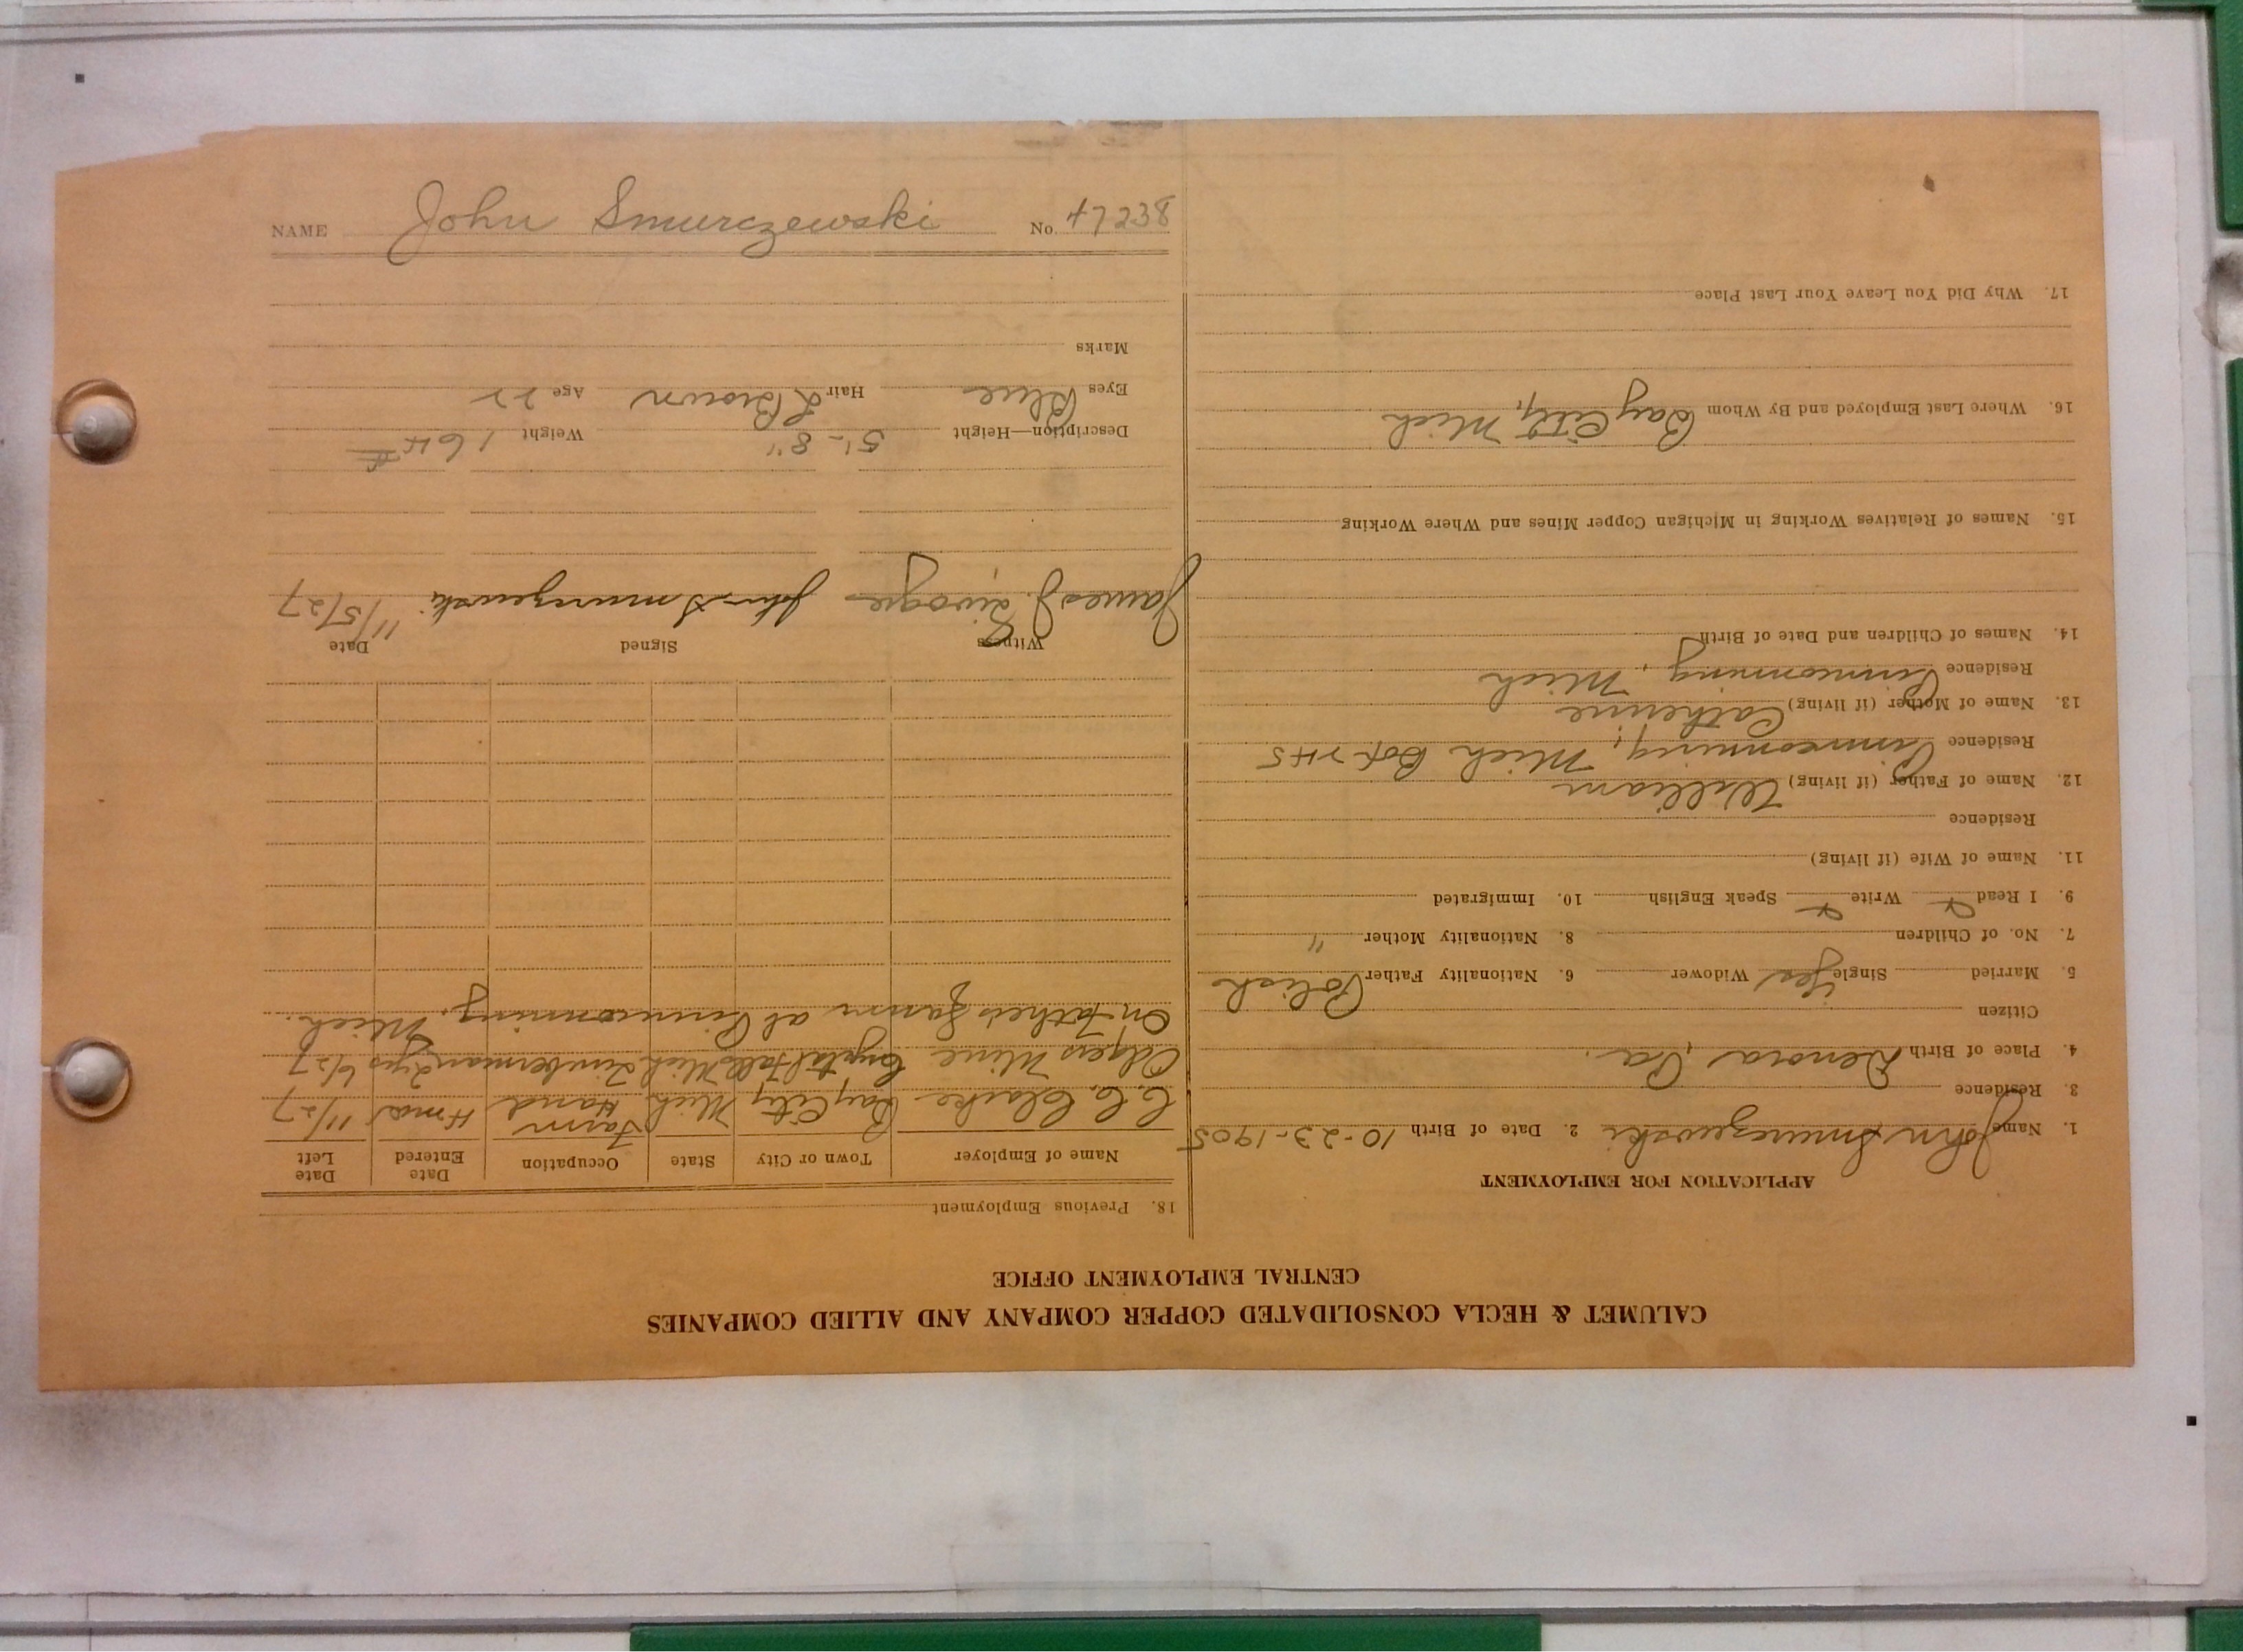 CALUMET & HECLA CONSOLIDATED COPPER COMPANY AND ALLIED COMPANIES
CENTRAL EMPLOYMENT OFFICE
APPLICATION FOR EMPLOYMENT
1. Name John Smurczewski 2. Date of Birth 10-23-1905
3. Residence
4. Place of Birth Denora, Pa.
Citizen
5. Married Single Yes Widower 6. Nationality Father Polish
7. No. of Children 8. Nationality Mother "
9. I Read Write Speak English 10. Immigrated
11. Name of Wife (if living)
Residence
12. Name of Father (if living) William
Residence Pinnconning, Mich Box 245
13. Name of Mother (if living) Catherine
Residence Pinnconning, Mich
14. Names of Children and Date of Birth
15. Names of Relatives Working in Michigan Copper Mines and Where Working
16. Where Last Employed and By Whom Bay City, Mich
17. Why Did You Leave Your Last Place
18. Previous Employment
Name of Employer Town or City State Occupation Date Entered Date Left
C. C. Clarke Bay City Mich Farm Hand 4 mos 11/27
Odgers Mine Crystal Falls Mich Timberman 2 yrs 6/27
On fathers farm at Pinnconning, Mich.
Witness Signed Date
James J. John Smurczewski 11/5/27
Description—Height 5'-8" Weight 164#
Eyes Blue Hair L Brown Age 22
Marks
NAME John Smurczewski No. 47238